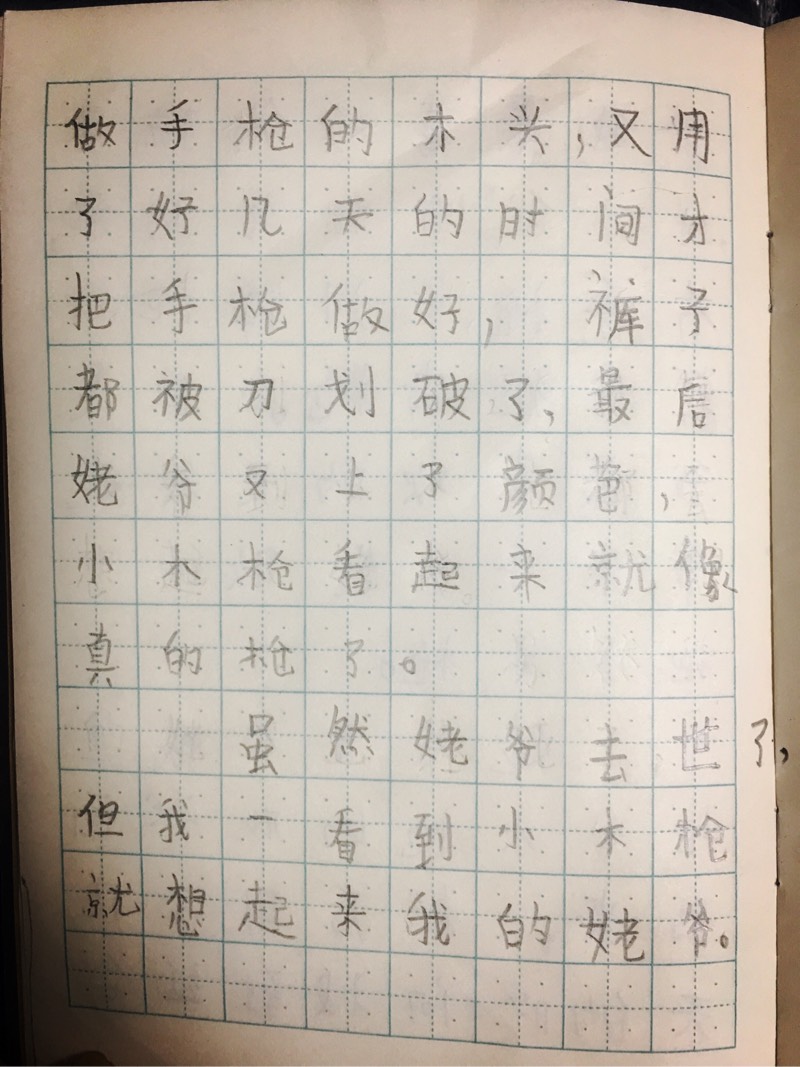 做手枪的木头，又用
了好几天的时间才
把手枪做好，裤子
都被刀划破了，最后
姥爷又上了颜色，
小木枪看起来就像
真的枪了。
虽然姥爷去世了，
但我一看到小木枪
就想起来我的姥爷。